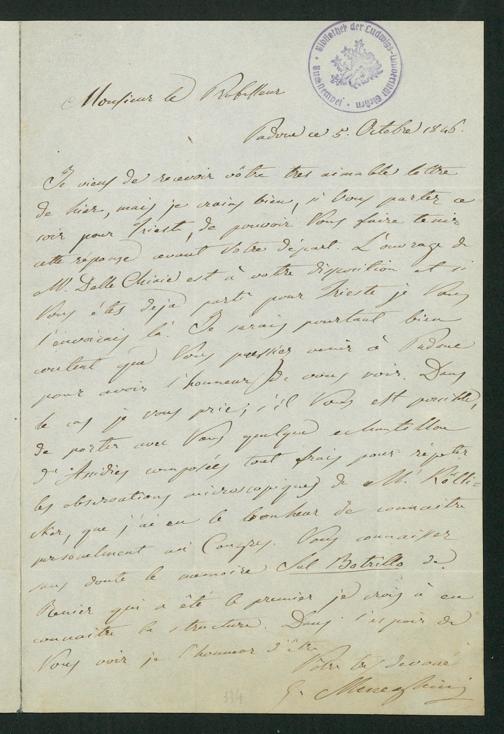 Bibliothek der Ludwigs-Universität Giessen
Monsieur le Professeur
Padoue ce 5. Octobre 1846.
Je viens de recevoir vôtre tres aimable lettre
de hier, mais je crains bien, si Vous partez ce
soir pour Trieste, de pouvoir Vous faire tenir
cette réponse avant Votre départ. L'ouvrage de
M. Delle Chiaie est à votre disposition et si
Vous étes deja parti pour Trieste je Vous
l'envoiais là. Je serais pourtant bien
content que Vous pussiez venir à Padoue
pour avoir l'honneur de vous voir. Dans
le cas je vous prie, s'il Vous est possible,
de porter avec Vous quelque echantillon
d'Ascidies composées tout frais pour répeter
les observations microscopiques de M. Kölli-
ker, que j'ai eu le bonheur de connaitre
personelment au Congres. Vous connaissez
sans doute le memoire Sul Botrillo de
Renier qui a été le premier je crois à en
connaitre la structure. Dans l'espoir de
Vous voir je l'honneur d'être
Votre tres devoué
G. Meneghini
334